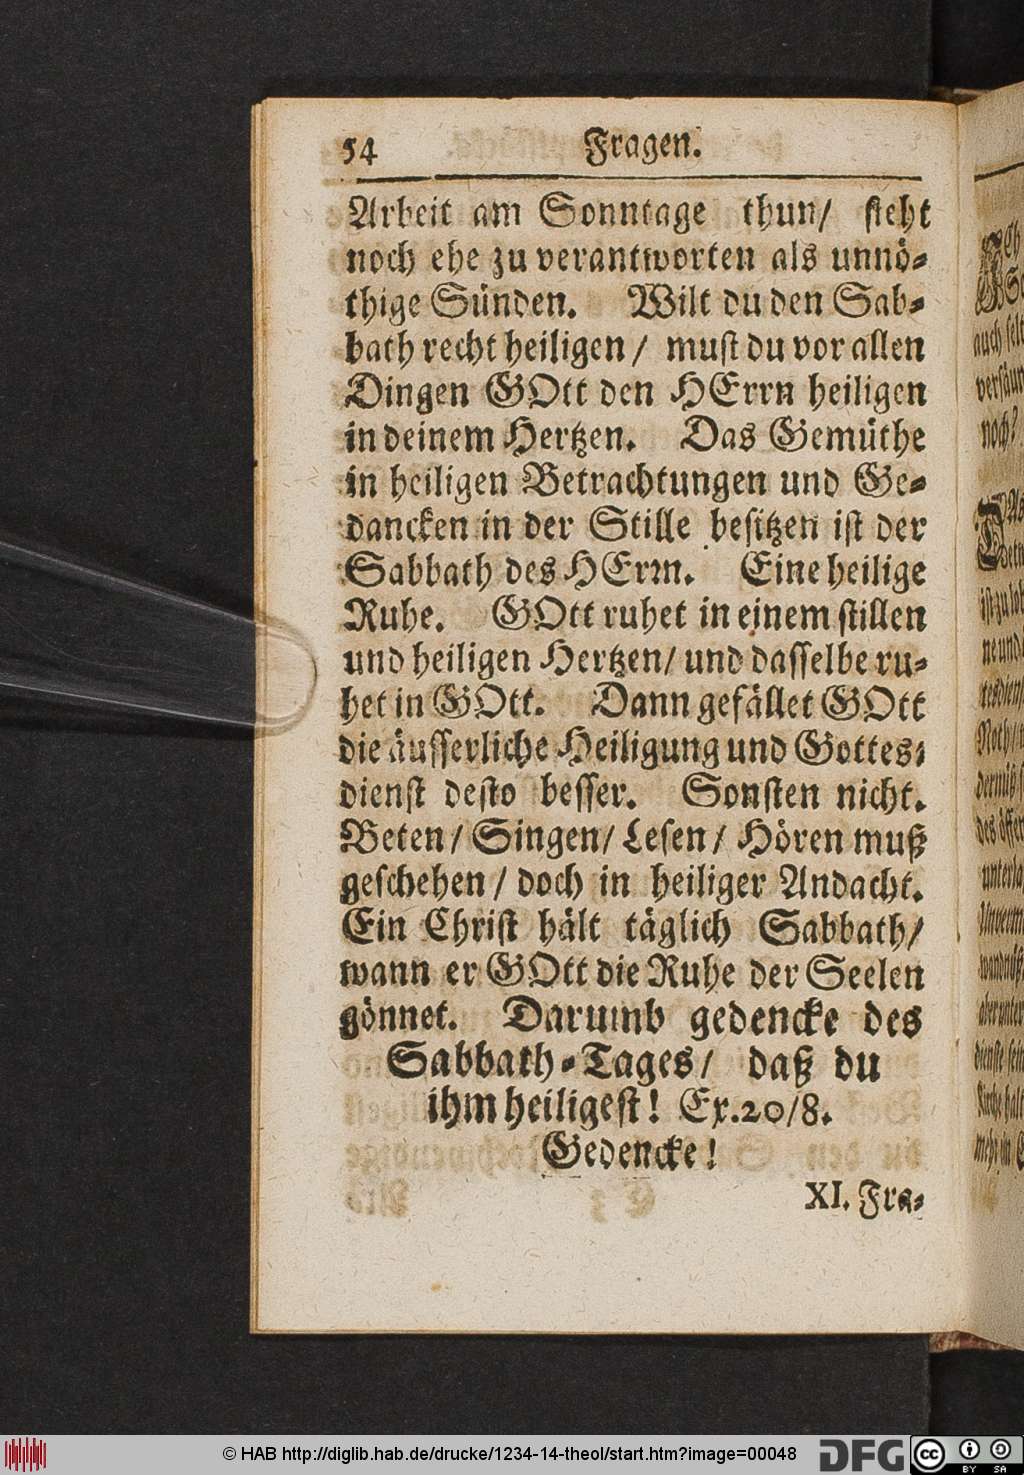 54 Fragen.
Arbeit am Sonntage thun/ steht
noch ehe zu verantworten als unnö-
thige Sünden. Wilt du den Sab-
bath recht heiligen / must du vor allen
Dingen GOtt den HErrn heiligen
in deinem Hertzen. Das Gemüthe
in heiligen Betrachtungen und Ge-
dancken in der Stille besitzen ist der
Sabbath des HErrn. Eine heilige
Ruhe. GOtt ruhet in einem stillen
und heiligen Hertzen/ und dasselbe ru-
het in GOtt. Dann gefället GOtt
die äusserliche Heiligung und Gottes-
dienst desto besser. Sonsten nicht.
Beten / Singen/ Lesen / Hören muß
geschehen / doch in heiliger Andacht.
Ein Christ hält täglich Sabbath/
wann er GOtt die Ruhe der Seelen
gönnet. Darumb gedencke des
Sabbath-Tages / daß du
ihm heiligest! Ex. 20/8.
Gedencke!
XI. Fra-
auch
noch?
© HAB http://diglib.hab.de/drucke/1234-14-theol/start.htm?image=00048
DFG
cc BY SA